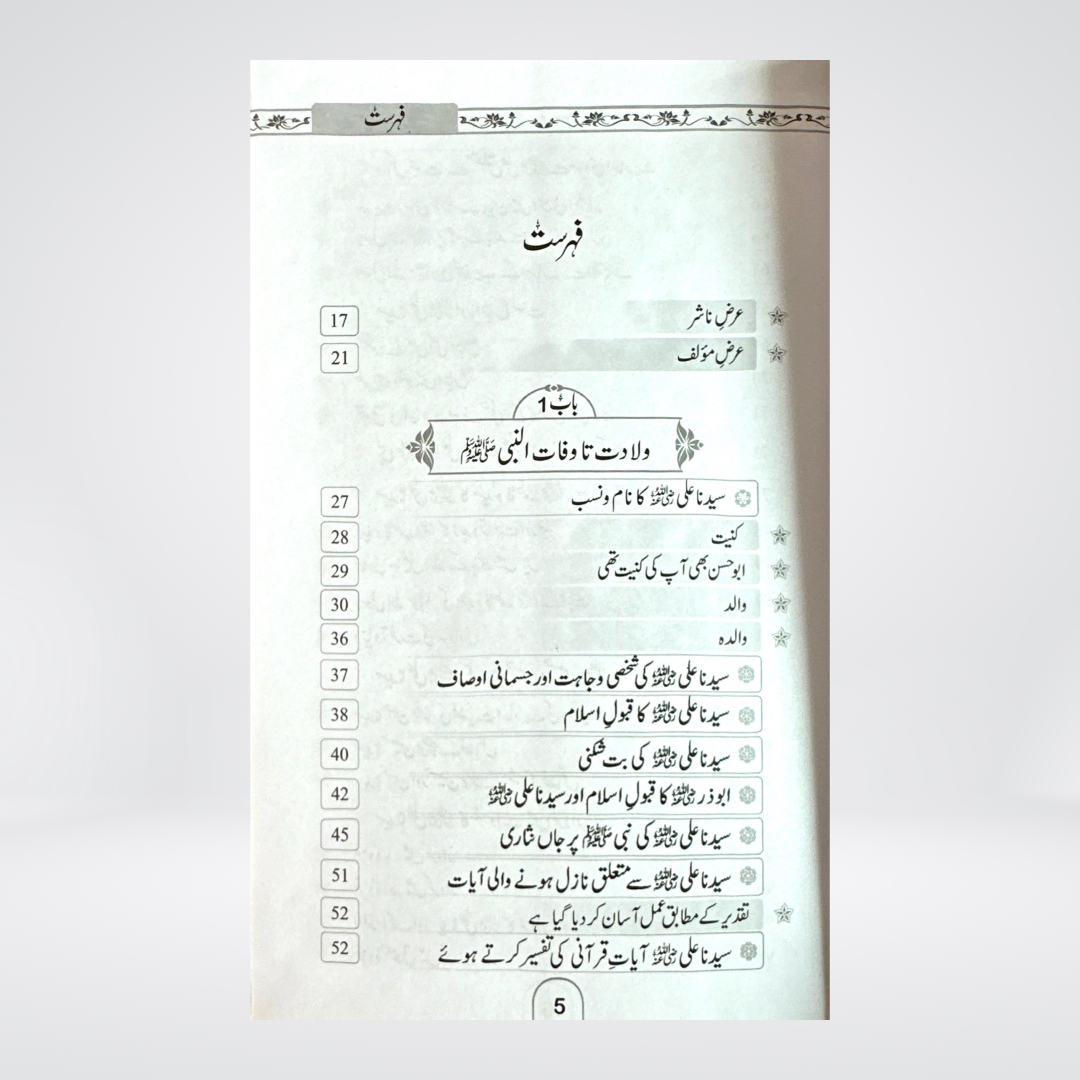 فہرست
فہرست
عرضِ ناشر 17
عرضِ مؤلف 21
باب 1
ولادت تا وفات النبی ﷺ
سیدنا علی رضی اللہ عنہ کا نام و نسب 27
کنیت 28
ابوحسن بھی آپ کی کنیت تھی 29
والد 30
والدہ 36
سیدنا علی رضی اللہ عنہ کی شخصی وجاہت اور جسمانی اوصاف 37
سیدنا علی رضی اللہ عنہ کا قبولِ اسلام 38
سیدنا علی رضی اللہ عنہ کی بت شکنی 40
ابوذر رضی اللہ عنہ کا قبولِ اسلام اور سیدنا علی رضی اللہ عنہ 42
سیدنا علی رضی اللہ عنہ کی نبی ﷺ پر جاں نثاری 45
سیدنا علی رضی اللہ عنہ سے متعلق نازل ہونے والی آیات 51
تقدیر کے مطابق عمل آسان کر دیا گیا ہے 52
سیدنا علی رضی اللہ عنہ آیاتِ قرآنی کی تفسیر کرتے ہوئے 52
5